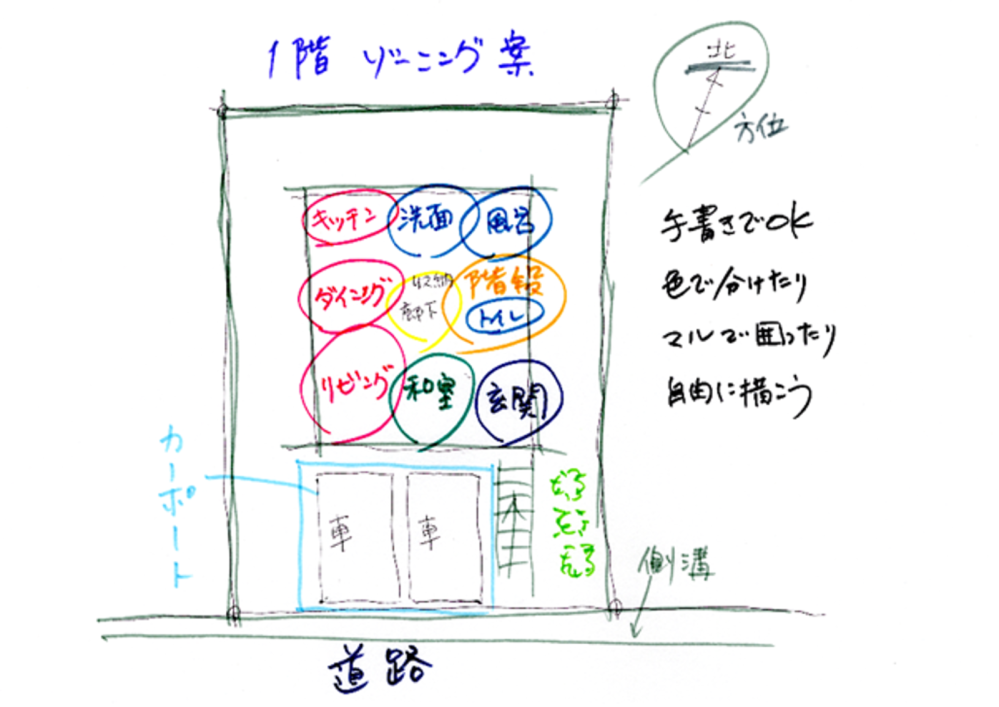 1階 ゾーニング案
北
方位
キッチン 洗面 風呂
ダイニング 収納 廊下 階段
トイレ
リビング 和室 玄関
手書きでOK
色で分けたり
マルで囲ったり
自由に描こう
カーポート
車 車
側溝
道路